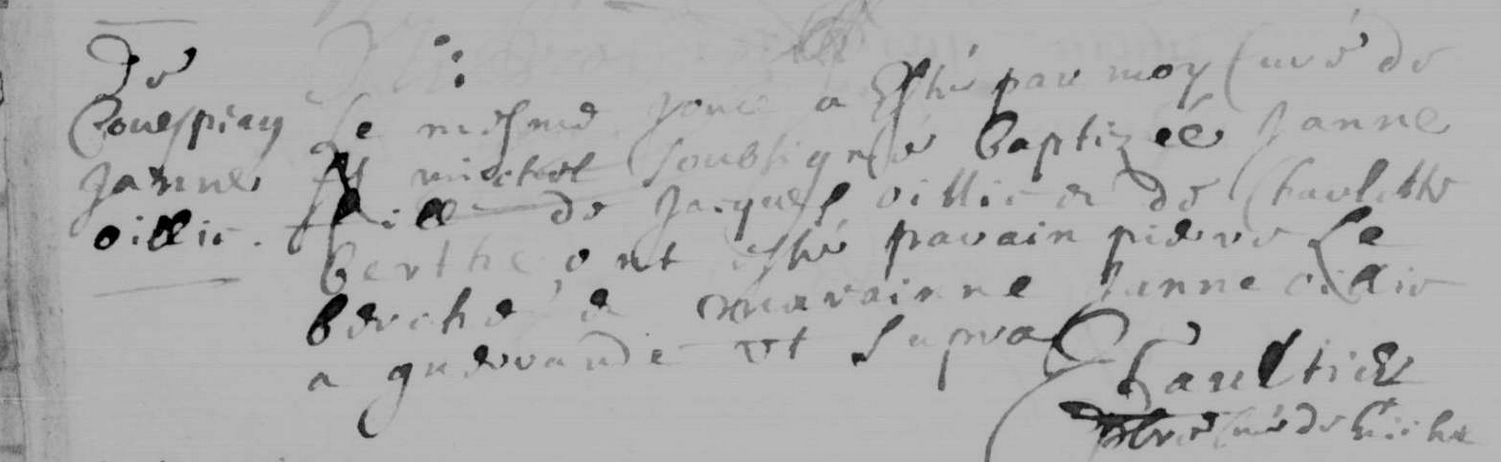 De
Couespiay
Janne
oillic.
Le mesme jour a esté par moy Curé de
St michel soubsigné baptizée Janne
fille de Jacques oillic & de Charlotte
berthe ont esté parain pierre Le
berche & marainne Janne oillic
a guerande ut supra
Gaultier
pbre Curé de